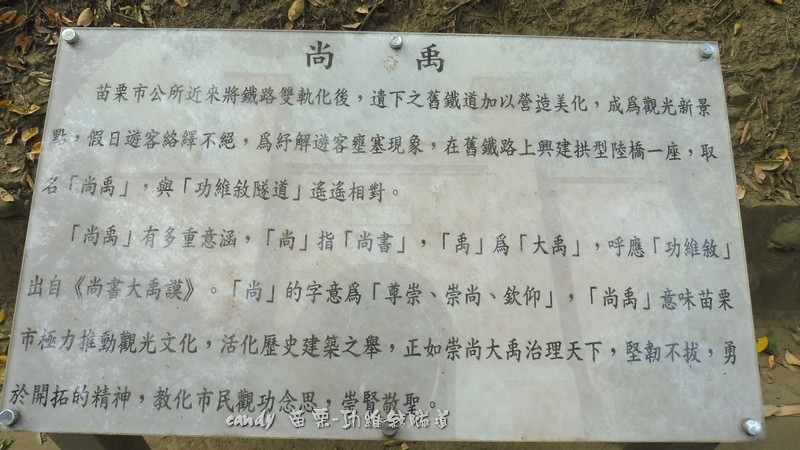 尚 禹
苗栗市公所近來將鐵路雙軌化後，遺下之舊鐵道加以營造美化，成為觀光新景
點，假日遊客絡繹不絕，為紓解遊客壅塞現象，在舊鐵路上興建拱型陸橋一座，取
名「尚禹」，與「功維敘隧道」遙遙相對。
「尚禹」有多重意涵，「尚」指「尚書」，「禹」為「大禹」，呼應「功維敘」
出自《尚書大禹謨》。「尚」的字意為「尊崇、崇尚、欽仰」，「尚禹」意味苗栗
市極力推動觀光文化，活化歷史建築之舉，正如崇尚大禹治理天下，堅韌不拔，勇
於開拓的精神，教化市民觀功念思，崇賢敬聖。
candy 苗栗-功維敘隧道